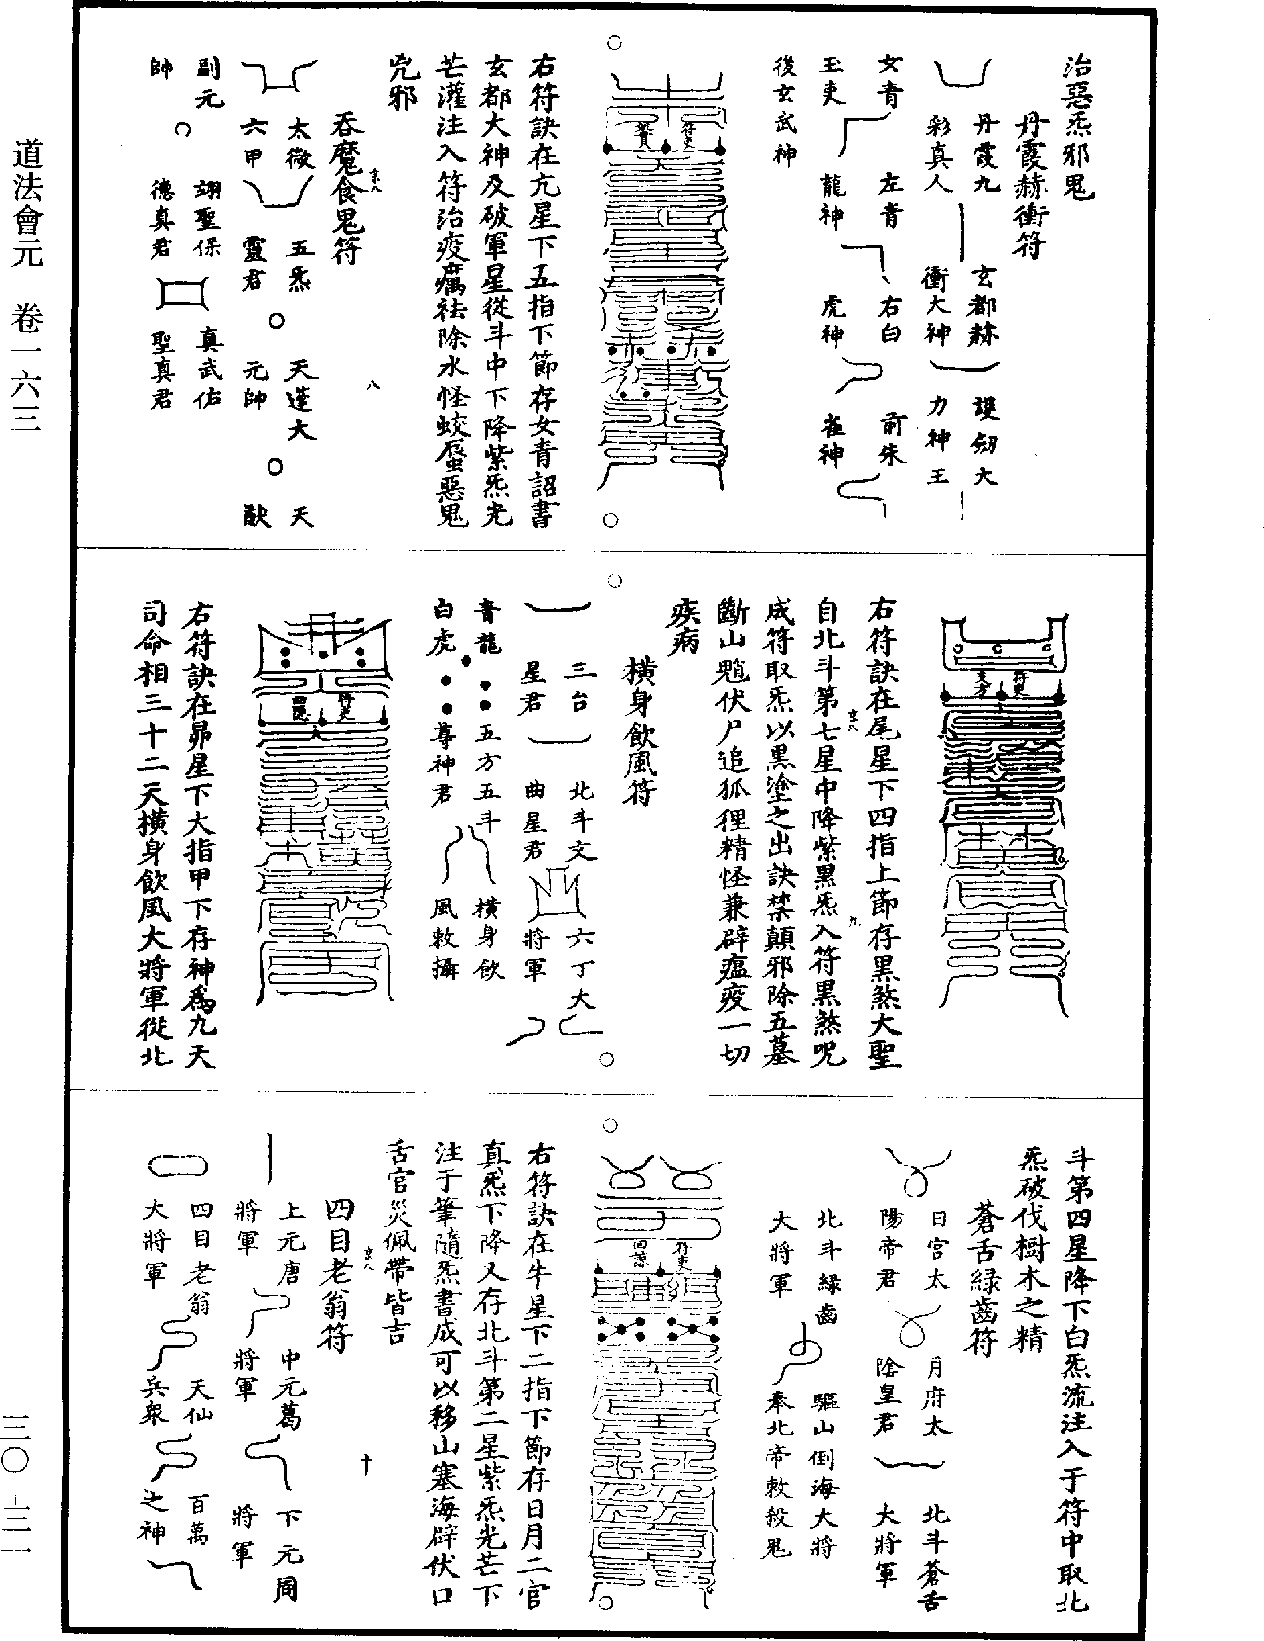 道法會元 卷一六三
三〇-三一
治惡炁邪鬼
丹霞赫衝符
丹霞九彩真人
玄都赫衝大神
護劒大力神王
女青玉吏
左青龍神
右白虎神
前朱雀神
後玄武神
符吏
右符訣在亢星下五指下節存女青詔書
玄都大神及破軍星從斗中下降紫炁光
芒灌注入符治疫癘祛除水怪蛟蜃惡鬼
兇邪
吞魔食鬼符
八
太微六甲
五炁靈君
天蓬大元帥
天猷副元帥
翊聖保德真君
真武佑聖真君
符吏
右符訣在尾星下四指上節存黑煞大聖
自北斗第七星中降紫黑炁入符黑煞呪
成符取炁以黑塗之出訣禁顛邪除五墓
斷山魈伏尸追狐狸精怪兼辟瘟疫一切
疾病
橫身飲風符
三台星君
北斗文曲星君
六丁大將軍
青龍白虎
五方五斗尊神君
橫身飲風敕攝
符吏
右符訣在昴星下大指甲下存神爲九天
司命相三十二天橫身飲風大將軍從北
斗第四星降下白炁流注入于符中取北
炁破伐樹木之精
蒼舌綠齒符
日宮太陽帝君
月府太陰皇君
北斗蒼舌大將軍
北斗綠齒大將軍
驅山倒海大將
奉北帝敕殺鬼
符吏
右符訣在牛星下二指下節存日月二宮
真炁下降又存北斗第二星紫炁光芒下
注于筆隨炁書成可以移山塞海辟伏口
舌官災佩帶皆吉
四目老翁符
十
上元唐將軍
中元葛將軍
下元周將軍
四目老翁大將軍
天仙兵衆
百萬之神